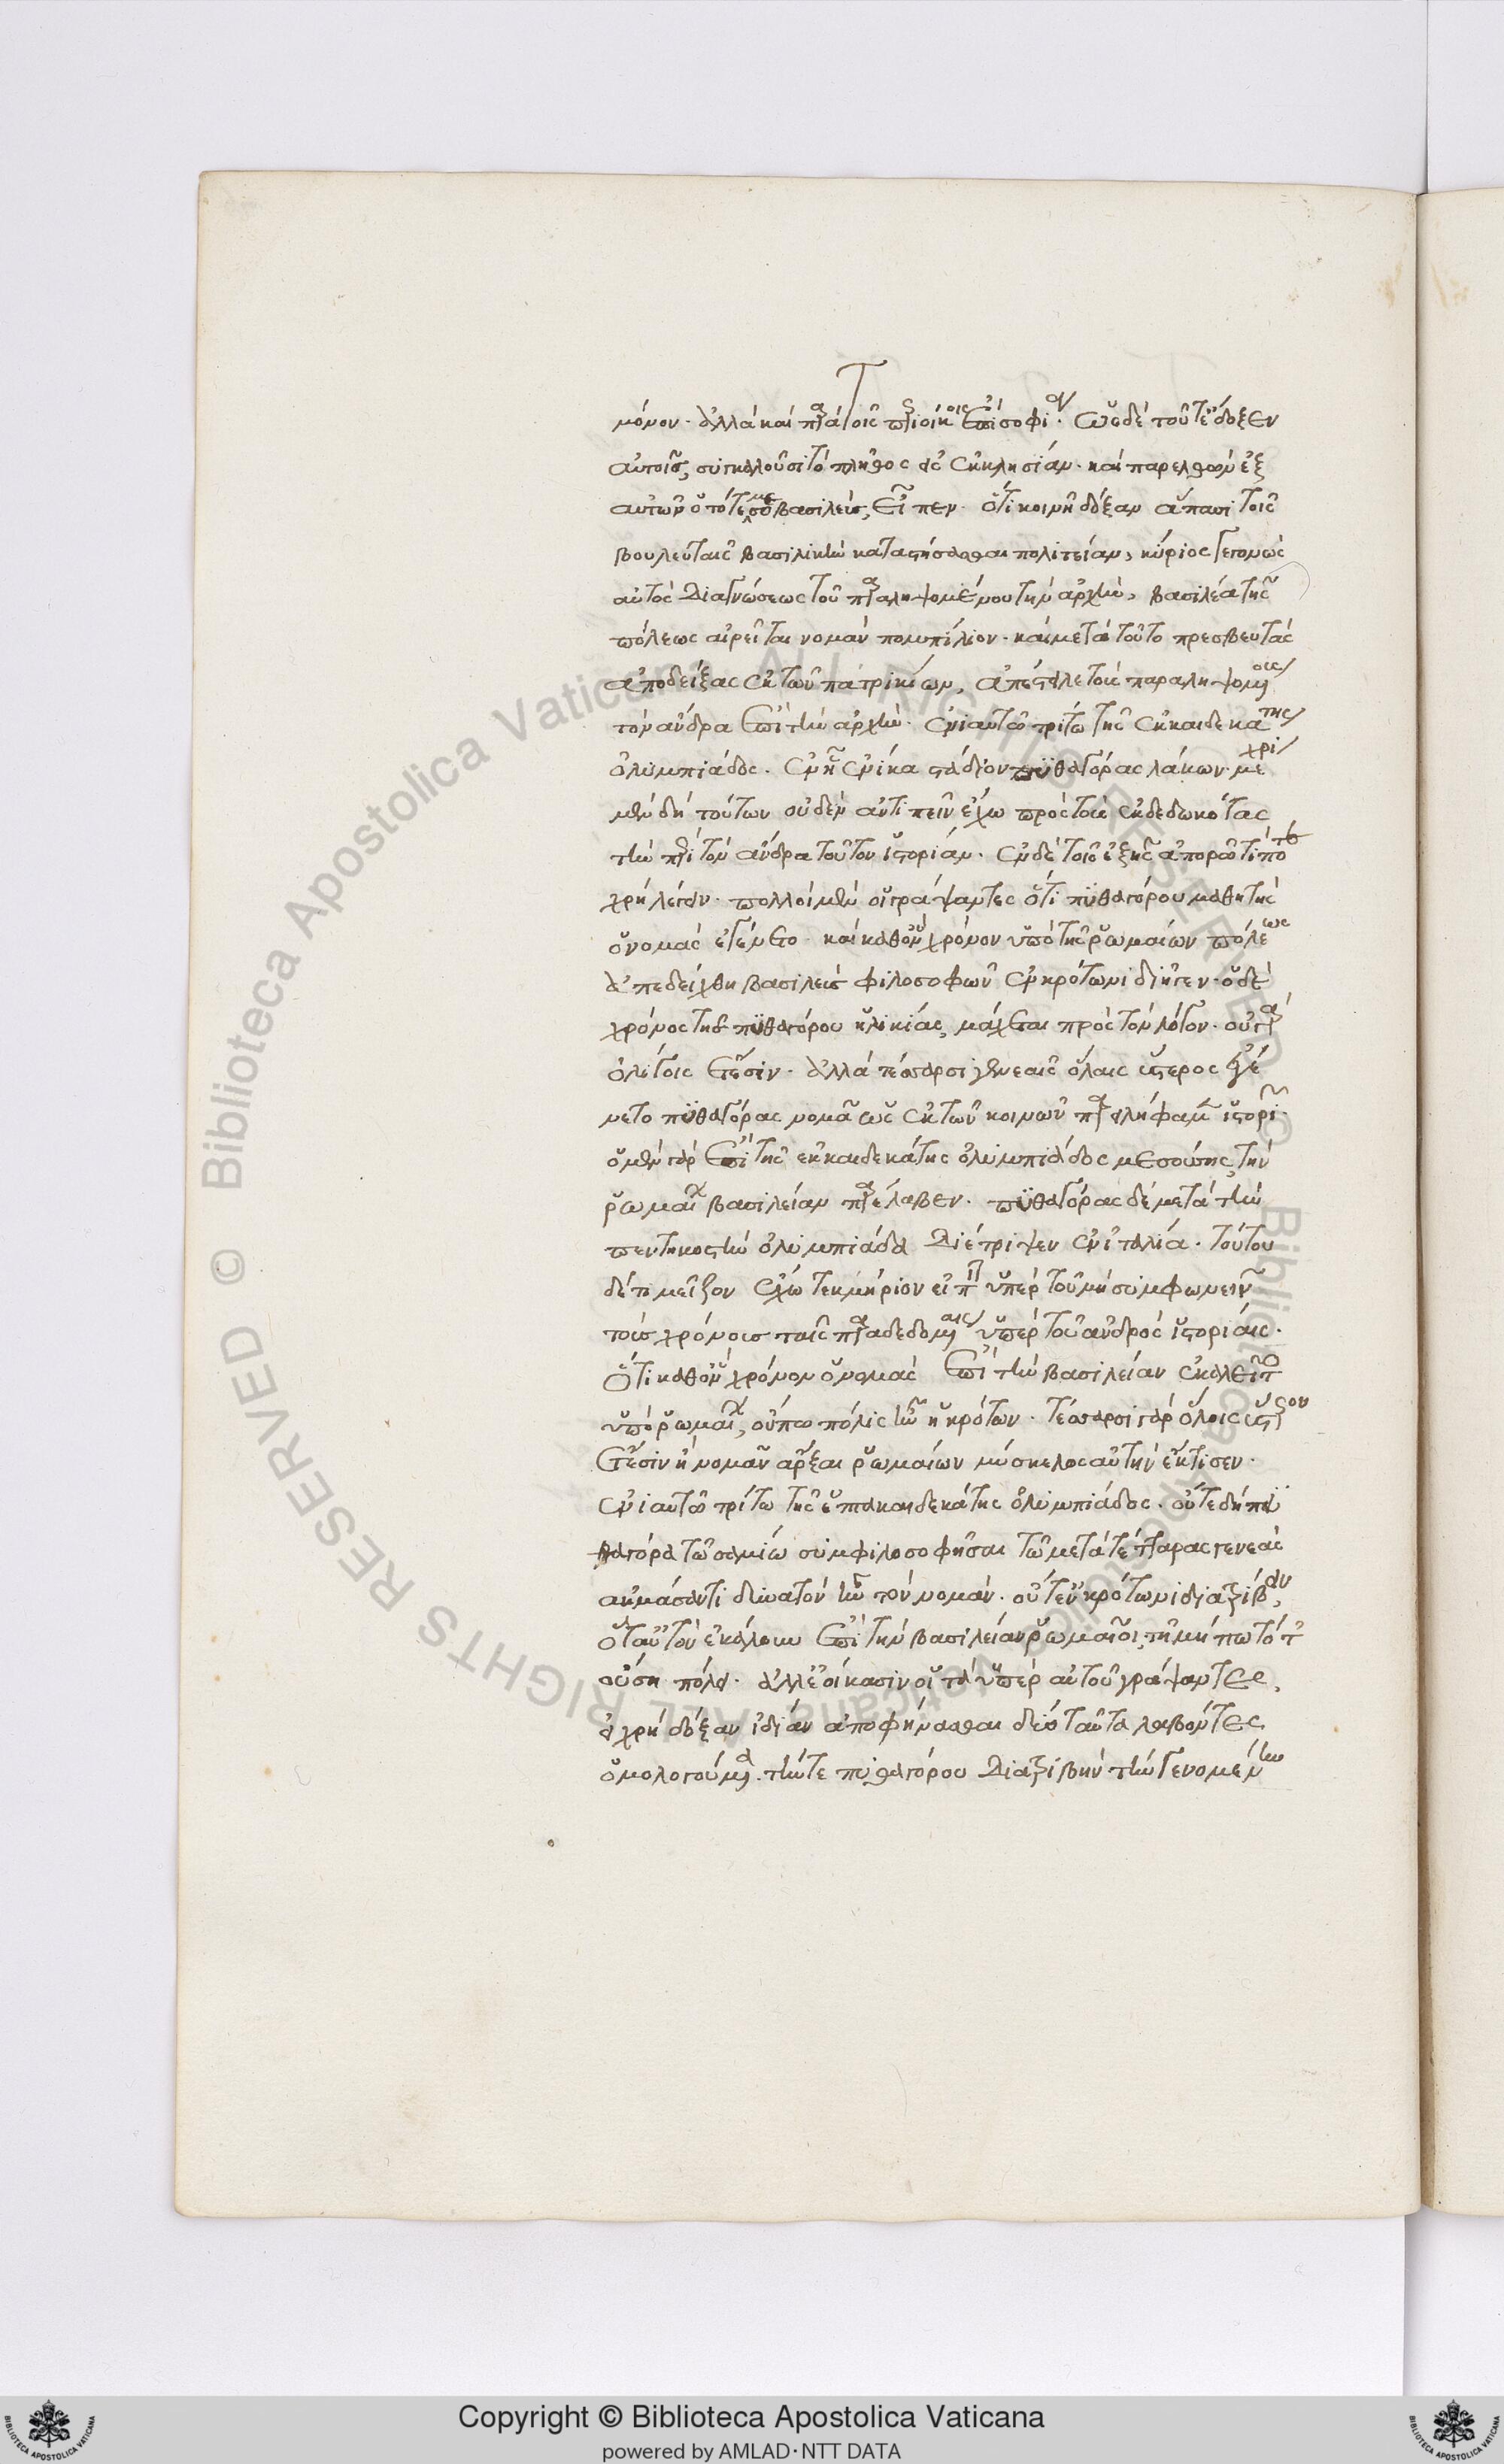 μόνον· ἀλλὰ καὶ παρὰ τοῖς περιοίκοις ἐπὶ σοφίαν· ὡς δὲ τοῦτ' ἔδοξεν
αὐτοῖς, συγκαλοῦσι τὸ πλῆθος εἰς ἐκκλησίαν· καὶ παρελθὼν ἐξ
αὐτῶν ὁ τότε μεσοβασιλεύς, εἶπεν· ὅτι κοινῆ δόξαν ἅπασι τοῖς
βουλευταῖς βασιλικὴν καταστήσασθαι πολιτείαν, κύριος γεγονὼς
αὐτὸς διαγνώσεως τοῦ παραληψομένου τὴν ἀρχὴν, βασιλέα τῆς
πόλεως αἱρεῖται νομᾶν πομπίλιον· καὶ μετὰ τοῦτο πρεσβευτὰς
ἀποδείξας ἐκ τῶν πατρικίων, ἀπέστειλε τοὺς παραληψομένους
τὸν ἄνδρα ἐπὶ τὴν ἀρχὴν· ἐνιαυτῶ τρίτω τῆς ἑκκαιδεκάτης
ὀλυμπιάδος· ἐν ἧ ἐνίκα στάδιον πυθαγόρας λάκων· μέχρι
μὲν δὴ τούτων οὐδὲν ἀντιπεῖν ἔχω πρὸς τοὺς ἐκδεδωκότας
τὴν περὶ τὸν ἄνδρα τοῦτον ἱστορίαν· ἐν δὲ τοῖς ἑξῆς ἀπορῶ τί ποτε
χρὴ λέγειν· πολλοὶ μὲν οἱ γράψαντες ὅτι πυθαγόρου μαθητὴς
ὁ νομᾶς ἐγένετο· καὶ καθ' ὃν χρόνον ὑπὸ τῆς ῥωμαίων πόλεως
ἀπεδείχθη βασιλεὺς φιλοσοφῶν ἐν κρότωνι διῆγεν· ὁ δὲ
χρόνος τῆς πυθαγόρου ἡλικίας, μάχεται πρὸς τὸν λόγον· οὐ γὰρ
ὀλίγοις ἔτεσιν· ἀλλὰ τέσσαρσι γενεαῖς ὅλαις ὕστερος ἐγέ
νετο πυθαγόρας νομᾶ ὡς ἐκ τῶν κοινῶν παρειλήφαμεν ἱστοριῶν·
ὁ μὲν γὰρ ἐπὶ τῆς ἑκκαιδεκάτης ὀλυμπιάδος μεσούσης, τὴν
ῥωμαίων βασιλείαν παρέλαβεν· πυθαγόρας δὲ μετὰ τὴν
πεντηκοστὴν ὀλυμπιάδα διέτριψεν ἐν ἰταλία· τούτου
δ' ἔτι μεῖζον ἔχω τεκμήριον εἰπεῖν ὑπὲρ τοῦ μὴ συμφωνεῖν
τοὺς χρόνους ταῖς παραδεδομέναις ὑπὲρ τοῦ ἀνδρὸς ἱστορίαις·
ὅτι καθ' ὃν χρόνον ὁ νομᾶς ἐπὶ τὴν βασιλείαν ἐκαλεῖτο
ὑπὸ ῥωμαίων, οὔπω πόλις ἦν ἡ κρότων· τέσσαρσι γὰρ ὅλοις ὕστερον
ἔτεσιν ἢ νομᾶν ἄρξαι ῥωμαίων μύσκελος αὐτὴν ἔκτισεν·
ἐνιαυτῶ τρίτω τῆς ἑπτακαιδεκάτης ὀλυμπιάδος· οὔτε δὴ πυ
θαγόρα τῶ σαμίω συμφιλοσοφῆσαι τῶ μετὰ τέτταρας γενεὰς
ἀκμάσαντι δυνατὸν ἦν τὸν νομᾶν· οὔτ' ἐν κρότωνι διατρίβειν,
ὅτ' αὐτὸν ἐκάλουν ἐπὶ τὴν βασιλείαν ῥωμαῖοι, τῆ μήπω τότε
οὔση πόλει· ἀλλ' ἐοίκασιν οἱ τὰ ὑπὲρ αὐτοῦ γράψαντες,
εἰ χρὴ δόξαν ἰδίαν ἀποφήνασθαι δύο ταῦτα λαβόντες
ὁμολογούμενα· τήν τε πυθαγόρου διατριβὴν τὴν γενομένην